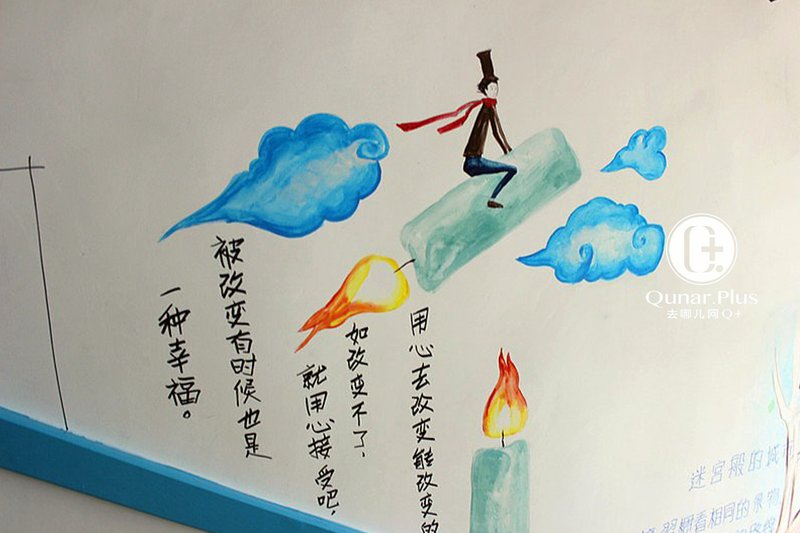 用心去改变能改变的
如改变不了，
就用心接受吧，
被改变有时候也是
一种幸福。
Q+
Qunar.Plus
去哪儿网Q+
迷宫殿的城
看相同的景物